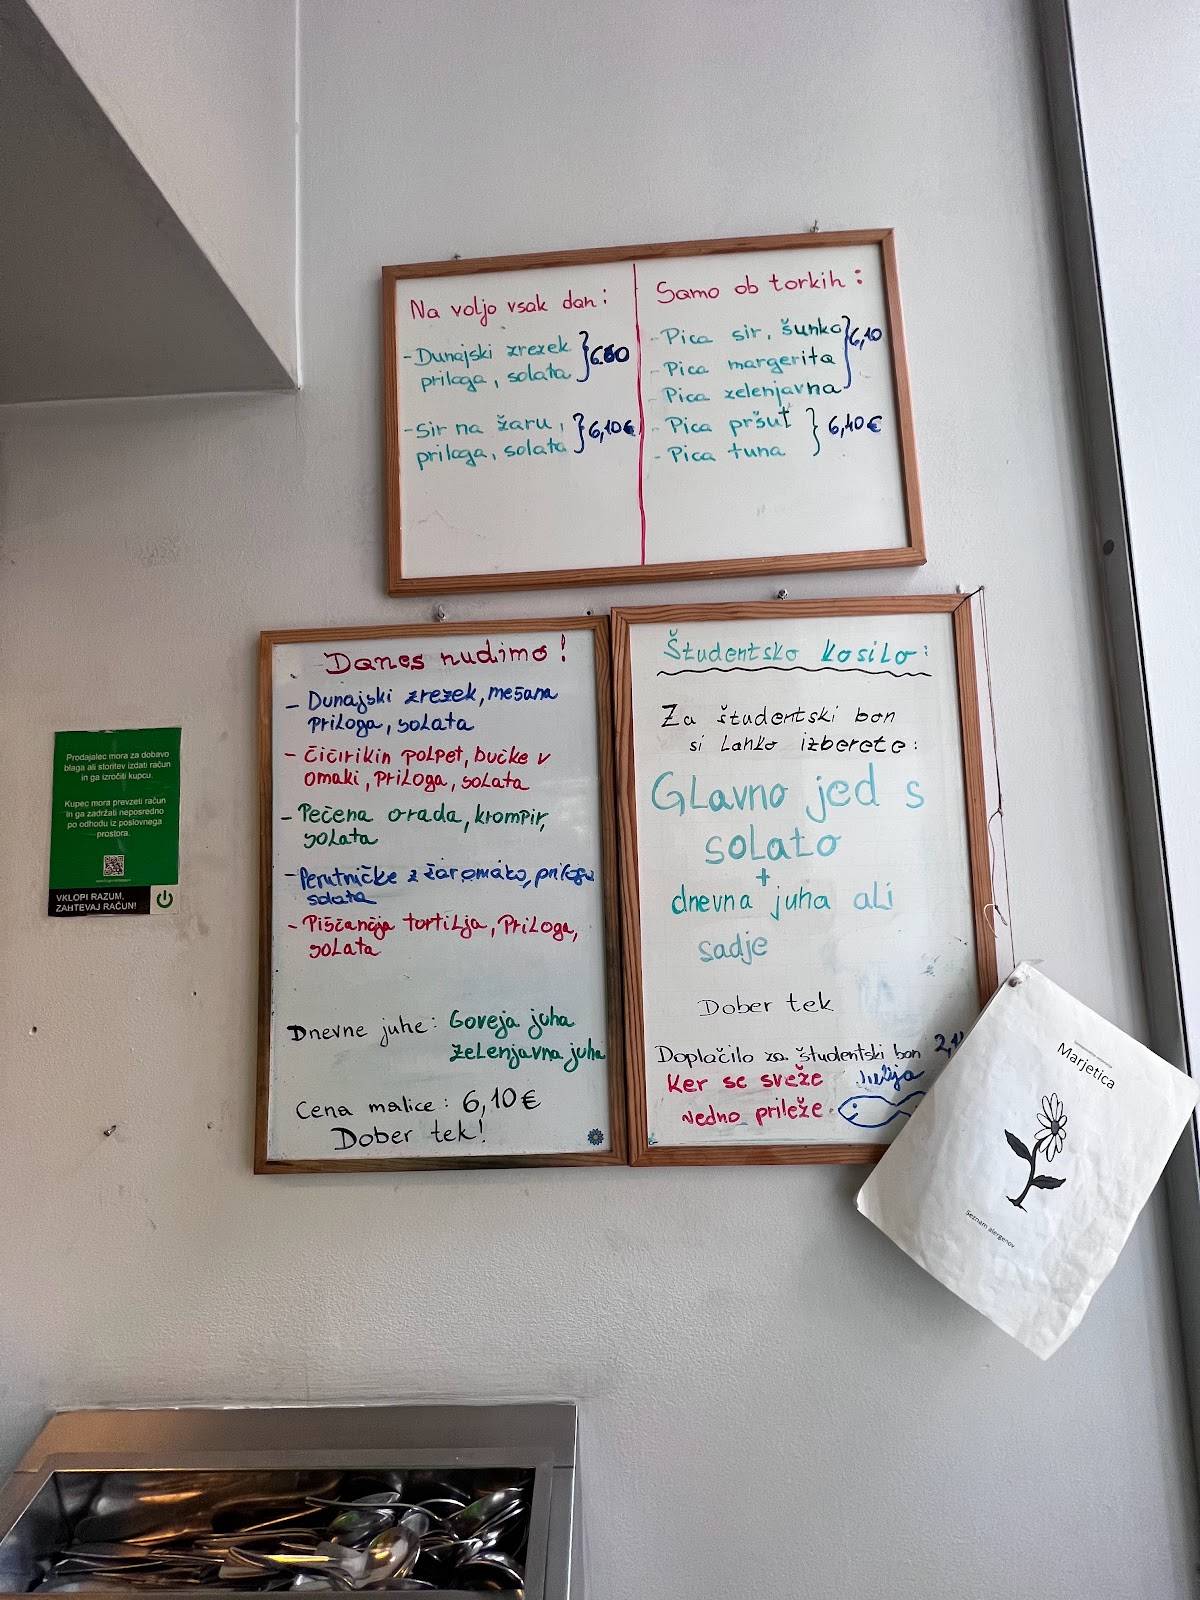 Na voljo vsak dan:
- Dunajski zrezek
priloga, solata
- Sir na žaru,
priloga, solata
6,10€
Samo ob torkih:
- Pica sir, šunka
- Pica margerita
- Pica zelenjavna
6,10
- Pica pršut
- Pica tuna
6,40€
Danes nudimo!
- Dunajski zrezek, mešana
priloga, solata
- Čičirikin polpet, bučke v
omaki, priloga, solata
- Pečena orada, krompir,
solata
- Perutničke z žar omako, priloga
solata
- Piščančja tortilja, priloga,
solata
Dnevne juhe: Goveja juha
Zelenjavna juha
Cena malice: 6,10€
Dober tek!
Študentsko kosilo:
Za študentski bon
si lahko izberete:
Glavno jed s
solato
+
dnevna juha ali
sadje
Dober tek
Doplačilo za študentski bon
Ker se sveže
vedno prileže
Prodajalec mora za dobavo
blaga ali storitev izdati račun
in ga izročiti kupcu.
Kupec mora prevzeti račun
in ga zadržati neposredno
po odhodu iz poslovnega
prostora.
VKLOPI RAZUM,
ZAHTEVAJ RAČUN!
Marjetica
Seznam alergenov